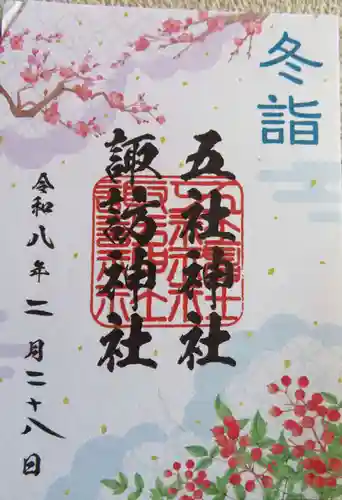 冬詣
五社神社
諏訪神社
令和八年二月二十八日